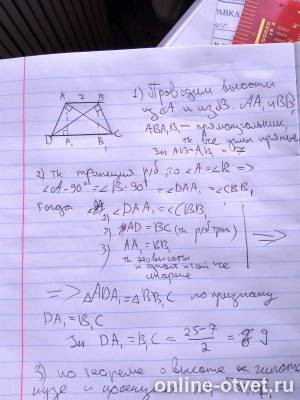 A 7 B
D A₁ B₁ C
1) Проводим высоты
из ∠A и из ∠B. AA₁ и BB₁
ABA₁B₁ – прямоугольник,
тк все углы прямые
Зн AB=A₁B₁ = 7
2) тк трапеция р/б то ∠A=∠B =>
∠A-90°=∠B-90° = ∠DAA₁ =∠CBB₁
Тогда ∠DAA₁=∠CBB₁
2) AD = BC (тк р/б трап)
3) AA₁ = BB₁
тк это высоты
к одной и той же
стороне
=> △ADA₁=△BB₁C по признаку
DA₁=B₁C
Зн DA₁=B₁C = 25-7 / 2 = 9
3) по теореме о высоте к гипоте
нузе и
online-otvet.ru